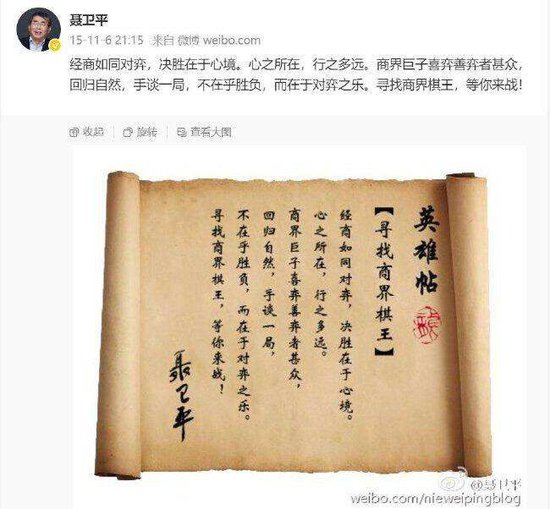 聂卫平
15-11-6 21:15 来自 微博 weibo.com
经商如同对弈，决胜在于心境。心之所在，行之多远。商界巨子喜弈善弈者甚众，
回归自然，手谈一局，不在乎胜负，而在于对弈之乐。寻找商界棋王，等你来战！
收起 旋转 查看大图
英雄帖
【寻找商界棋王】
经商如同对弈，决胜在于心境。
心之所在，行之多远。
商界巨子喜弈善弈者甚众，
回归自然，手谈一局，
不在乎胜负，而在于对弈之乐。
寻找商界棋王，等你来战！
聂卫平
@聂卫平
weibo.com/nieweipingblog